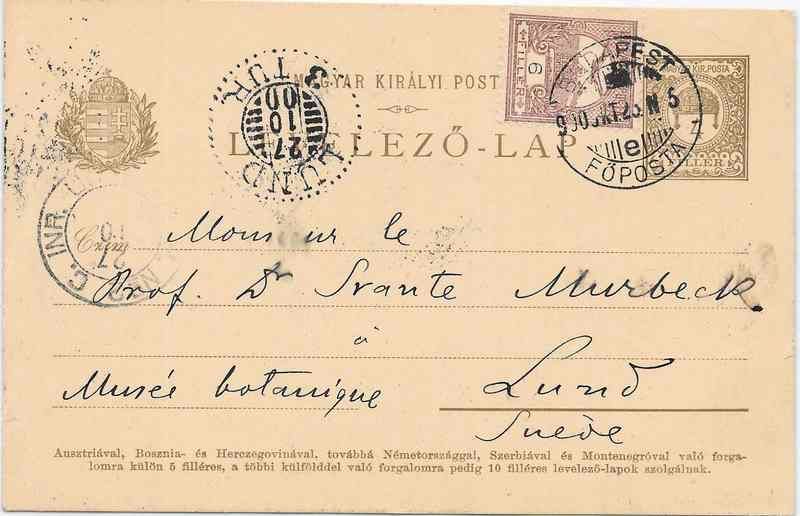 FILLÉR
6
MAGYAR KIRÁLYI POST
LEVELEZŐ-LAP
BUDAPEST
900 OKT. 25. N 5
FŐPOSTA
M. KIR. POSTA
4
FILLÉR
LUND
27
10
00
3 TUR
C. INR.
27
10
Czím
Monsieur le
Prof. Dr Svante Murbeck
à
Musée botanique Lund
Suède
Ausztriával, Bosznia- és Herczegovinával, továbbá Németországgal, Szerbiával és Montenegróval való forga-
lomra külön 5 filléres, a többi külfölddel való forgalomra pedig 10 filléres levelező-lapok szolgálnak.